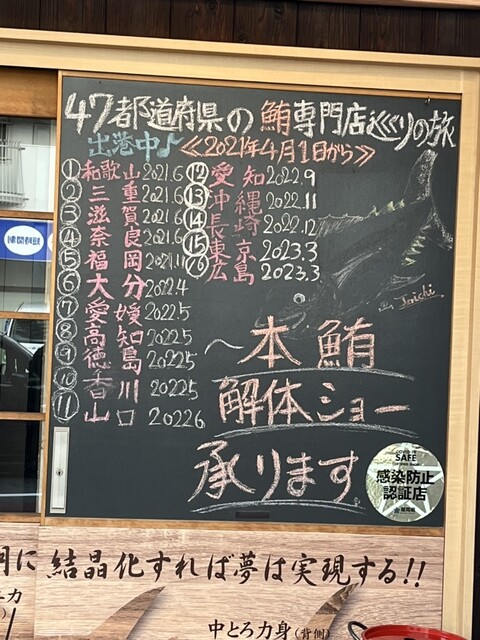 47都道府県の鮪専門店巡りの旅
出港中♪≪2021年4月1日から≫
① 和歌山 2021.6
② 三重 2021.6
③ 滋賀 2021.6
④ 奈良 2021.6
⑤ 福岡 2021.11
⑥ 大分 2022.4
⑦ 愛媛 2022.5
⑧ 高知 2022.5
⑨ 徳島 2022.5
⑩ 香川 2022.5
⑪ 山口 2022.6
⑫ 愛知 2022.9
⑬ 沖縄 2022.11
⑭ 長崎 2022.12
⑮ 東京 2023.3
⑯ 広島 2023.3
Joichi
～本鮪
解体ショー
承ります
SAFE
感染防止
認証店
福岡県
結晶化すれば夢は実現する!!
中とろ力身(背側)